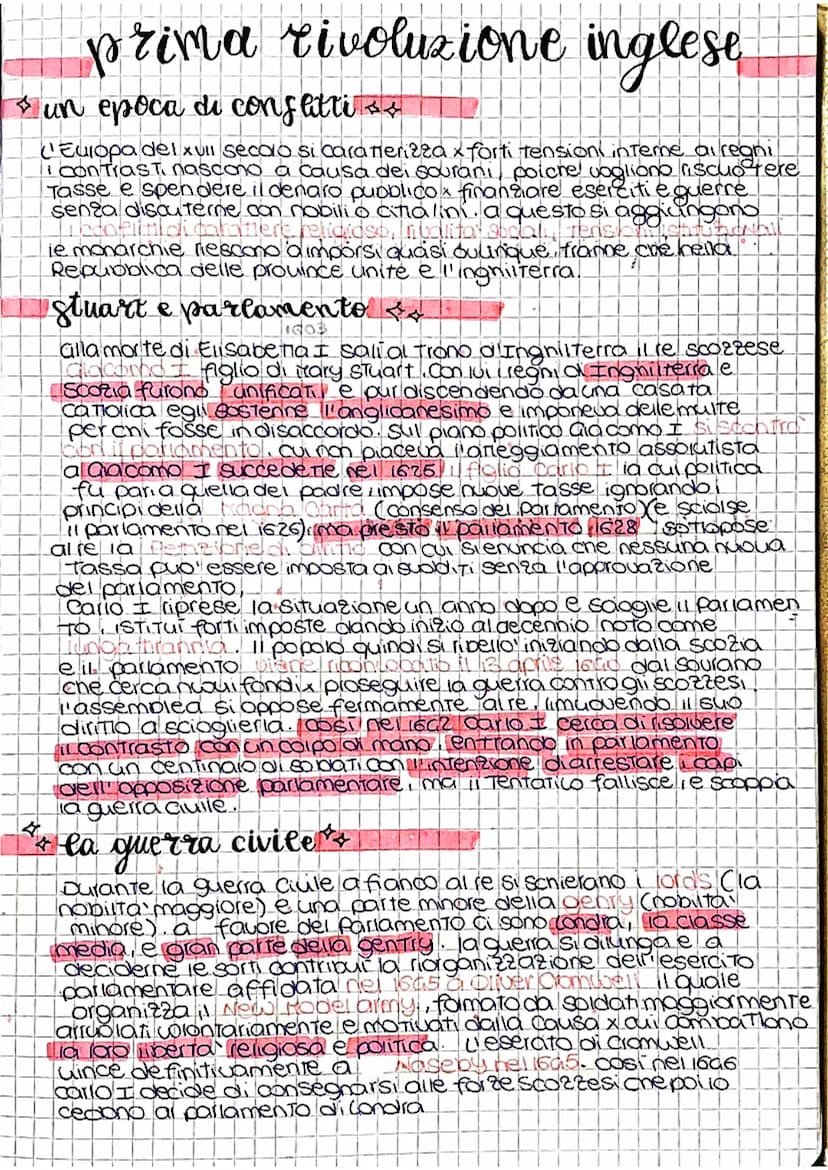 prima rivoluzione inglese
un epoca di conflitti
L'Europa del XVII secolo si caratterizza x forti tensioni interne ai regni
i contrasti nascono a causa dei sovrani, poiche' vogliono riscuotere
tasse e spendere il denaro pubblico x finanziare eserciti e guerre
senza discuterne con nobili o cittalini. a questo si aggiungono
conflitti di carattere religioso, rivalita' sociali, tensioni istituzionali
le monarchie riescono a imporsi quasi ovunque, tranne che nella
Repubblica delle province unite e l'inghilterra.
stuart e parlamento
1603
alla morte di Elisabetta I sali' al trono d'Inghilterra il re scozzese
Giacomo I figlio di Mary Stuart. Con lui i regni di Inghilterra e
Scozia furono unificati e pur discendendo da una casata
cattolica egli sostenne l'anglicanesimo e imponeva delle multe
per chi fosse in disaccordo. Sul piano politico Giacomo I si scontro'
con il parlamento, cui non piaceva l'atteggiamento assolutista
a Giacomo I succedette nel 1625 il figlio Carlo I la cui politica
fu pari a quella del padre, impose nuove tasse ignorando i
principi della Magna Carta (consenso del parlamento) (e sciolse
il parlamento nel 1626), ma presto il parlamento 1628 sottopose
al re la Petizione di diritto con cui si enuncia che nessuna nuova
tassa puo' essere imposta ai sudditi senza l'approvazione
del parlamento,
Carlo I riprese la situazione un anno dopo e scioglie il parlamen
to, istitui forti imposte dando inizio al decennio noto come
lunga tirannia. Il popolo quindi si ribello' iniziando dalla scozia
e il parlamento viene il 13 aprile 1640 dal sovrano
che cerca nuovi fondi x proseguire la guerra contro gli scozzesi,
l'assemblea si oppose fermamente al re, rimuovendo il suo
diritto a scioglierla. cosi' nel 1642 Carlo I cerca di risolvere
il contrasto con un colpo di mano, entrando in parlamento
con un centinaio di soldati con l'intenzione di arrestare i capi
dell'opposizione parlamentare, ma il tentativo fallisce e scoppia
la guerra civile.
la guerra civile
Durante la guerra civile a fianco al re si schierano i lords (la
nobilta' maggiore) e una parte minore della genrry (nobilta'
minore). a favore del Parlamento ci sono Londra, la classe
media, e gran parte della gentry. la guerra si dilunga e a
deciderne le sorti contribui' la riorganizzazione dell'esercito
parlamentare affidata nel 1645 a Oliver Cromwell il quale
organizza il New Model army, formato da soldati maggiormente
arruolati volontariamente e motivati dalla causa x cui combattono
la loro liberta' religiosa e politica. L'esercito di Cromwell
vince definitivamente a Naseby nel 1645. cosi nel 1646
Carlo I decide di consegnarsi alle forze scozzesi che poi lo
cedono al parlamento di Londra